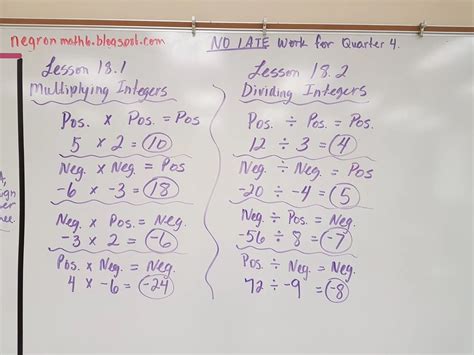 negronmath6.blogspot.com
NO LATE Work for Quarter 4.
Lesson 18.1
Multiplying Integers
Pos. x Pos. = Pos
5 x 2 = 10
Neg. x Neg. = Pos
-6 x -3 = 18
Neg. x Pos. = Neg.
-3 x 2 = -6
Pos. x Neg. = Neg.
4 x -6 = -24
Lesson 18.2
Dividing Integers
Pos. ÷ Pos. = Pos.
12 ÷ 3 = 4
Neg. ÷ Neg. = Pos
-20 ÷ -4 = 5
Neg. ÷ Pos. = Neg.
-56 ÷ 8 = -7
Pos. ÷ Neg. = Neg.
72 ÷ -9 = -8